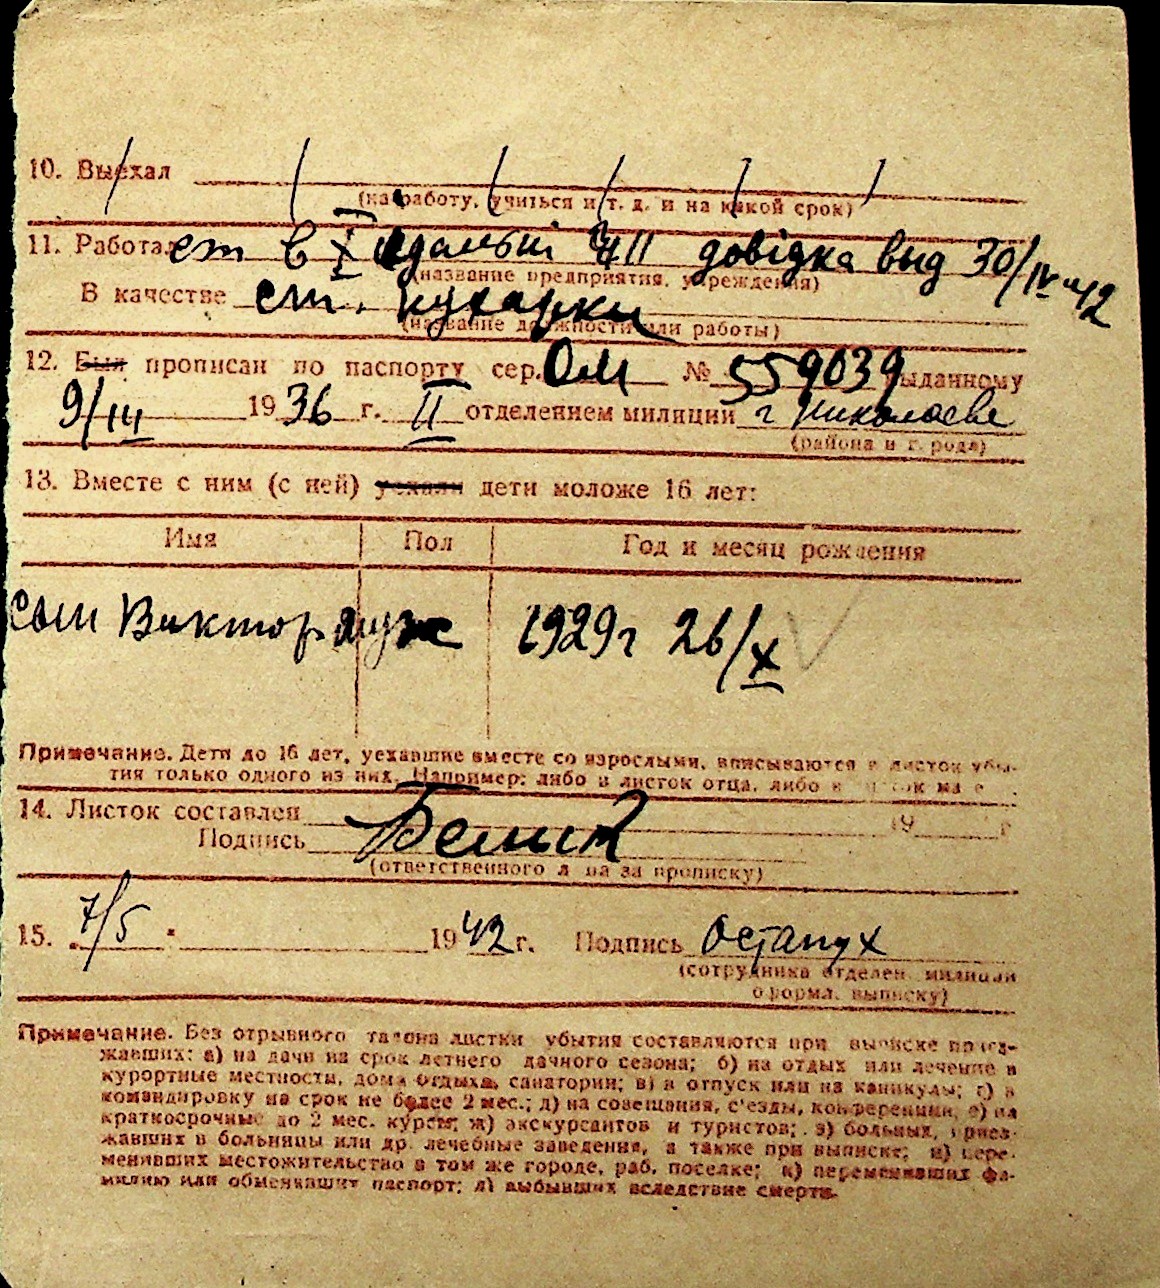 10. Выехал
(на работу, учиться и т. д. и на какой срок)
11. Работает в X їдальні довідка выд 30/IV 42
(название предприятия, учреждения)
В качестве ст. кухарки
(название должности или работы)
12. Был прописан по паспорту сер. ОМ № 559039 выданному
9/III 1936 г. II отделением милиции г Николаеве
(района и города)
13. Вместе с ним (с ней) уехали дети моложе 16 лет:
Имя Пол Год и месяц рождения
сын Виктор муж 1929 г 26/X
Примечание. Дети до 16 лет, уехавшие вместе со взрослыми, вписываются в листок убы-
тия только одного из них. Например: либо в листок отца, либо в листок
14. Листок составлен 19 г
Подпись
(ответственного лица за прописку)
15. 7/5 1942 г. Подпись Остапух
(сотрудника отделен. милиции
оформл. выписку)
Примечание. Без отрывного талона листки убытия составляются при выписке приез-
жавших: а) на дачи на срок летнего дачного сезона; б) на отдых или лечение в
курортные местности, дома отдыха, санатории; в) в отпуск или на каникулы; г) в
командировку на срок не более 2 мес.; д) на совещания, с'езды, конференции, е) на
краткосрочные до 2 мес. курсы; ж) экскурсантов и туристов; з) больных, приез-
жавших в больницы или др. лечебные заведения, а также при выписке; и) пере-
менивших местожительство в том же городе, раб. поселке; к) переменивших фа-
милию или обменявших паспорт; л) выбывших вследствие смерти.